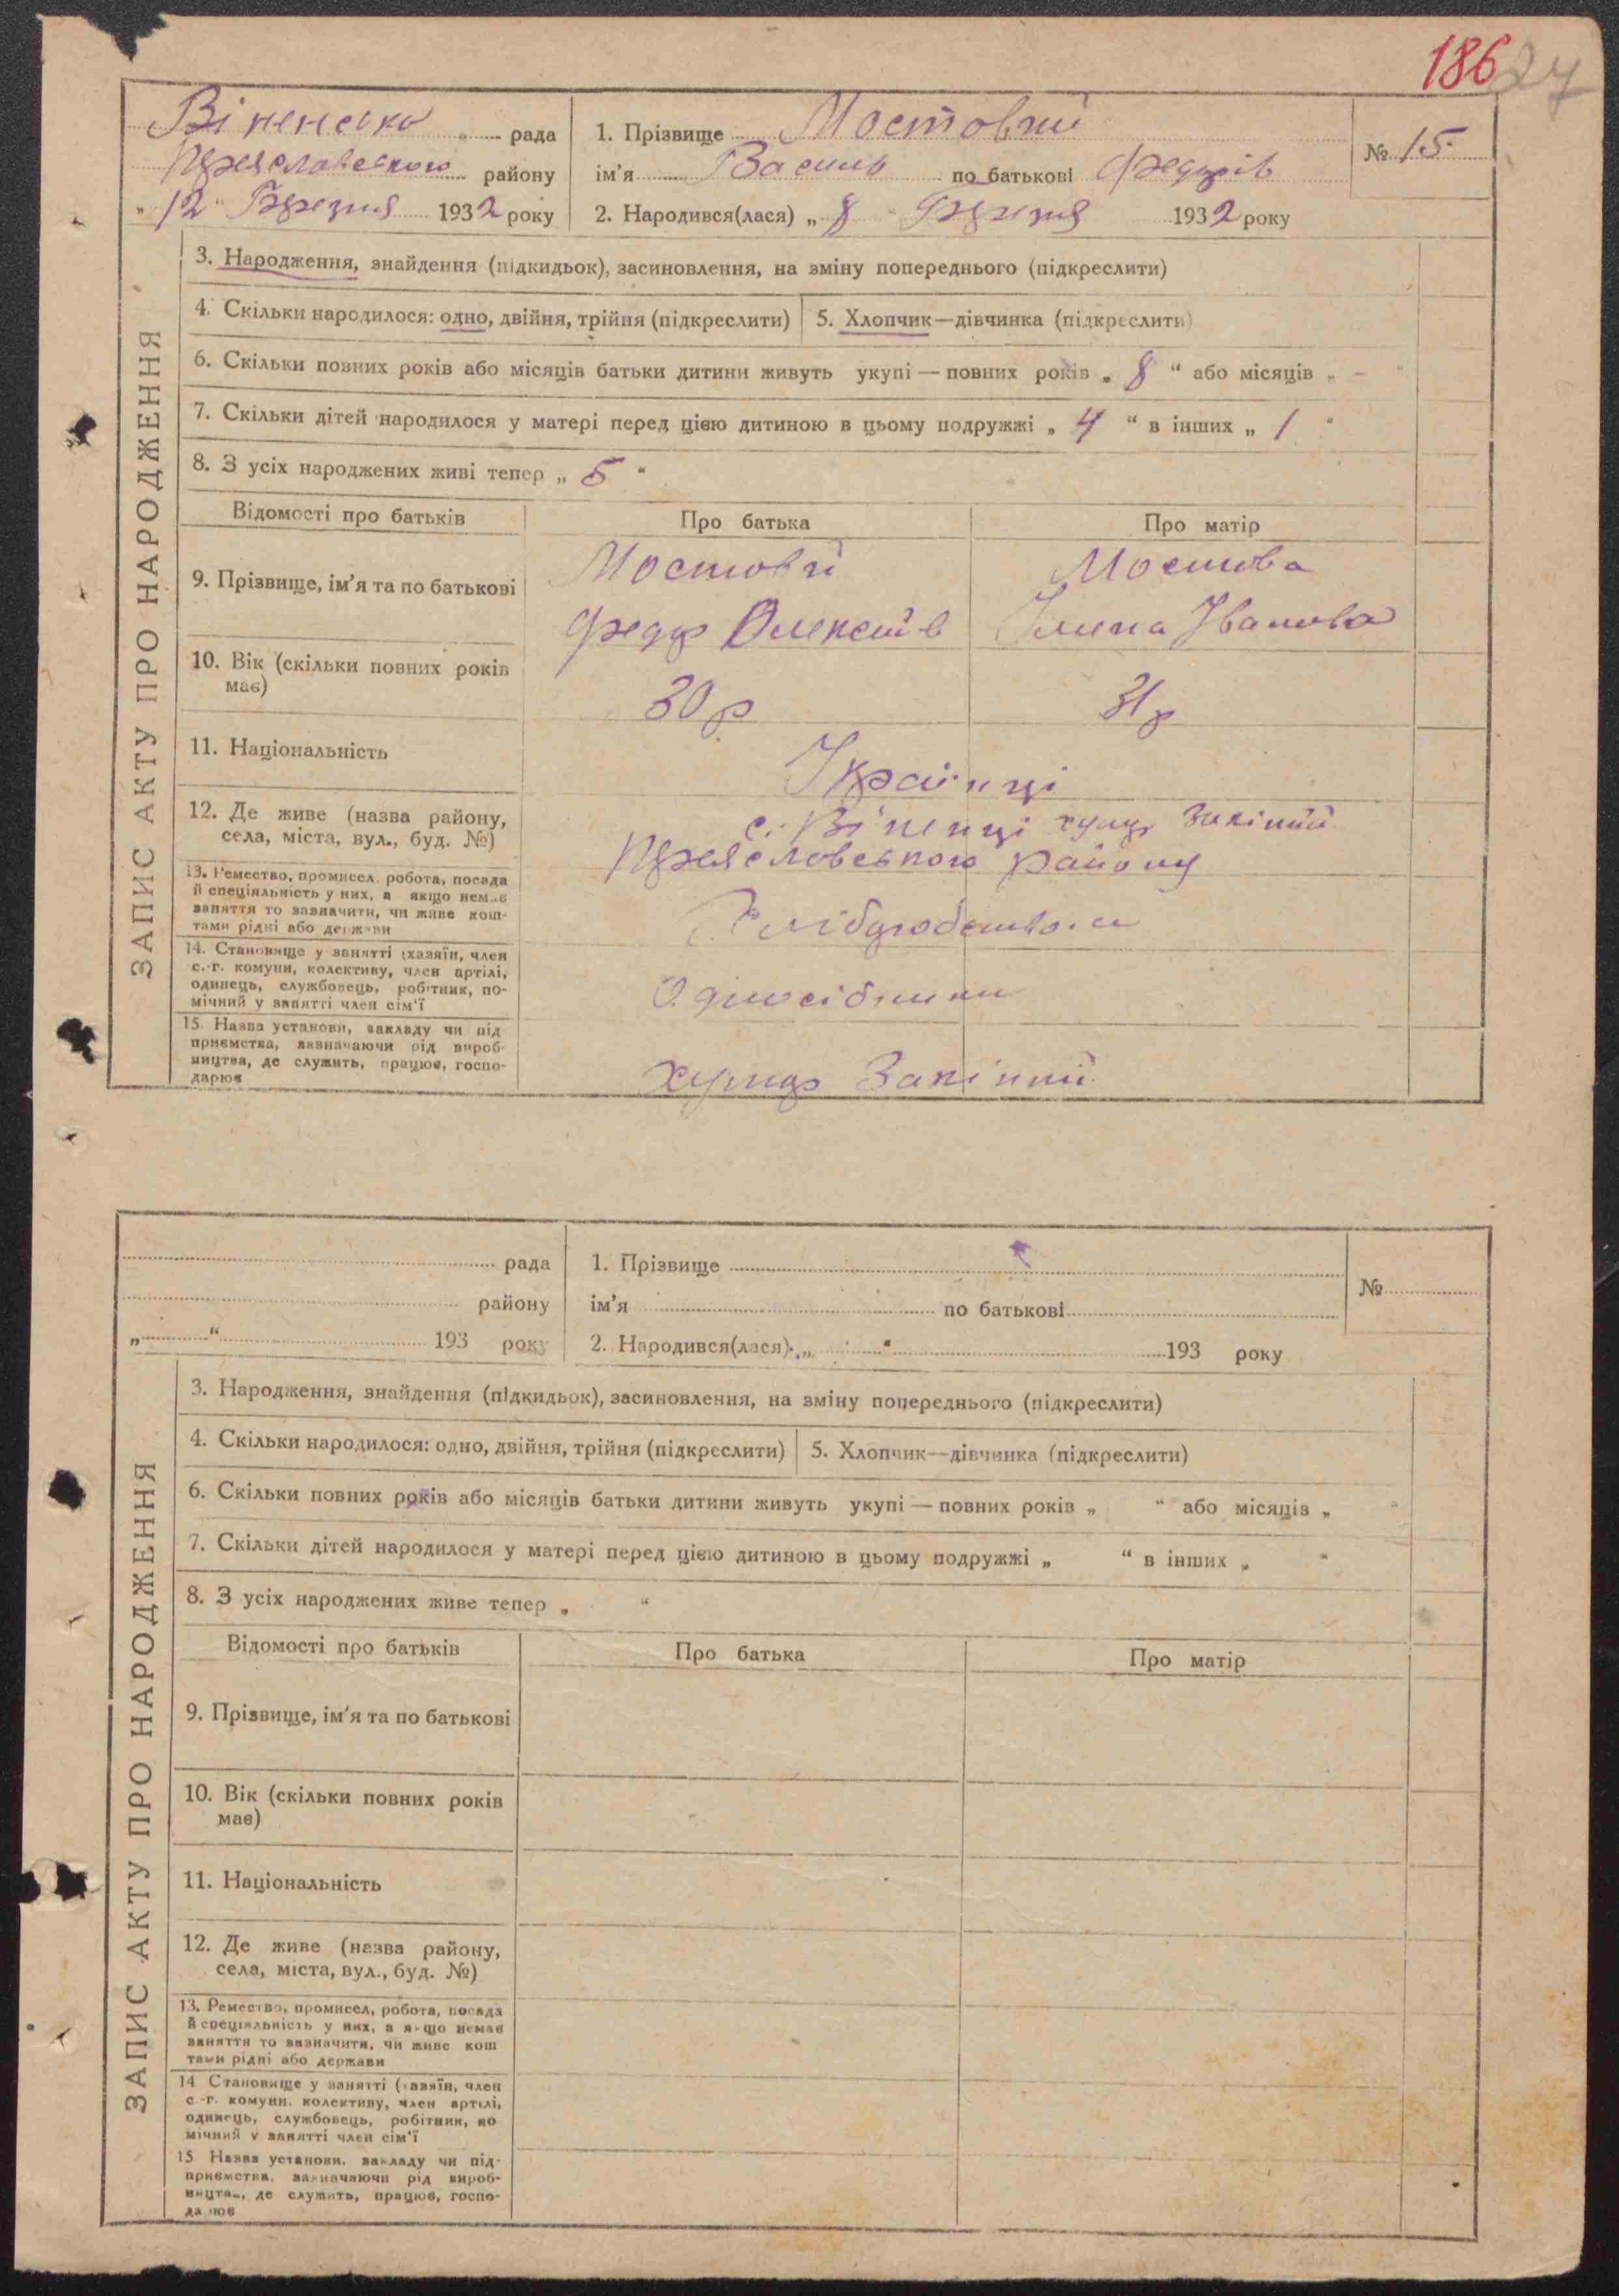 186 24
Віненська рада
Переяславського району
„12“ Березня 1932 року
1. Прізвище Мостовий
ім'я Василь по батькові Федорів
№ 15
2. Народився(лася) „8“ Березня 1932 року
ЗАПИС АКТУ ПРО НАРОДЖЕННЯ
3. Народження, знайдення (підкидьок), засиновлення, на зміну попереднього (підкреслити)
4. Скільки народилося: одно, двійня, трійня (підкреслити) 5. Хлопчик—дівчинка (підкреслити)
6. Скільки повних років або місяців батьки дитини живуть укупі — повних років „ 8 “ або місяців „ - “
7. Скільки дітей народилося у матері перед цією дитиною в цьому подружжі „ 4 “ в інших „ 1 “
8. З усіх народжених живі тепер „ 5 “
Відомості про батьків Про батька Про матір
9. Прізвище, ім'я та по батькові
Мостовй Мостова
Федор Олексіїв Ілина Іванова
10. Вік (скільки повних років
має)
30 р 31 р
11. Національність
Українці
12. Де живе (назва району,
села, міста, вул., буд. №)
с. Віненці хутір
Переясловського району
13. Ремество, промисел, робота, посада
й спеціяльність у них, а якщо немає
заняття то зазначити, чи живе кош-
тами рідні або держави
Хлібдробство.м
14. Становище у занятті (хазяїн, член
с.-г. комуни, колективу, член артілі,
одинець, службовець, робітник, по-
мічний у занятті член сім'ї
Одноосібники
15. Назва установи, закладу чи під
приємства, зазначаючи рід вироб-
ництва, де служить, працює, госпо-
дарює
хутор
рада
району
„ “ 193 року
1. Прізвище
ім'я по батькові
№
2. Народився(лася) „ “ 193 року
ЗАПИС АКТУ ПРО НАРОДЖЕННЯ
3. Народження, знайдення (підкидьок), засиновлення, на зміну попереднього (підкреслити)
4. Скільки народилося: одно, двійня, трійня (підкреслити) 5. Хлопчик—дівчинка (підкреслити)
6. Скільки повних років або місяців батьки дитини живуть укупі — повних років „ “ або місяців „ “
7. Скільки дітей народилося у матері перед цією дитиною в цьому подружжі „ “ в інших „ “
8. З усіх народжених живе тепер „ “
Відомості про батьків Про батька Про матір
9. Прізвище, ім'я та по батькові
10. Вік (скільки повних років
має)
11. Національність
12. Де живе (назва району,
села, міста, вул., буд. №)
13. Ремество, промисел, робота, посада
й спеціяльність у них, а якщо немає
заняття то зазначити, чи живе кош
тами рідні або держави
14 Становище у занятті (хазяїн, член
с.-г. комуни, колективу, член артілі,
одинець, службовець, робітник, по
мічний у занятті член сім'ї
15 Назва установи, закладу чи під-
приємства, зазначаючи рід вироб-
ництва, де служить, працює, госпо-
дарює